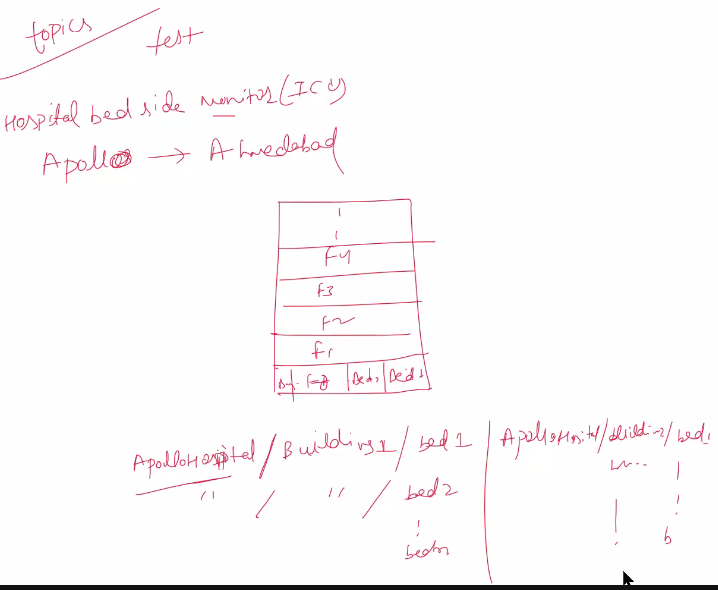 topics
test
Hospital bed side monitor (ICU)
Apollo → Ahmedabad
F4
F3
F2
F1
Bed1 Bed1
ApolloHospital / Building1 / bed 1
" / " / bed 2
bedn
ApolloHospital/building/bed1
b